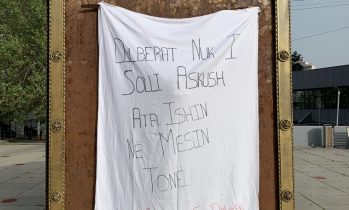 DILBERAT NUK I
SOLLI ASKUSH
ATA ISHIN
NE MESIN
TONE